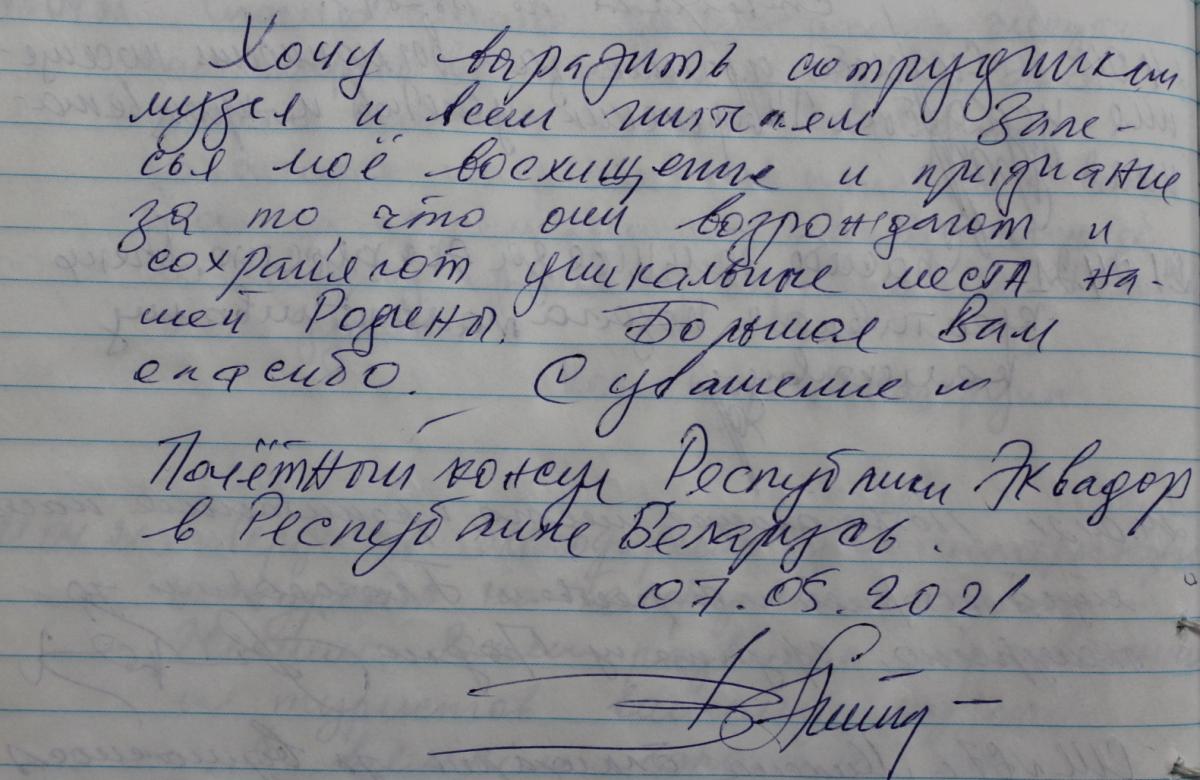 Хочу выразить сотрудникам
музея и всем жителям Зале-
сья моё восхищение и признание
за то что они возрождают и
сохраняют уникальные места на-
шей Родины. Большое Вам
спасибо. С уважением
Почётный консул Республики Эквадор
в Республике Беларусь.
07.05.2021